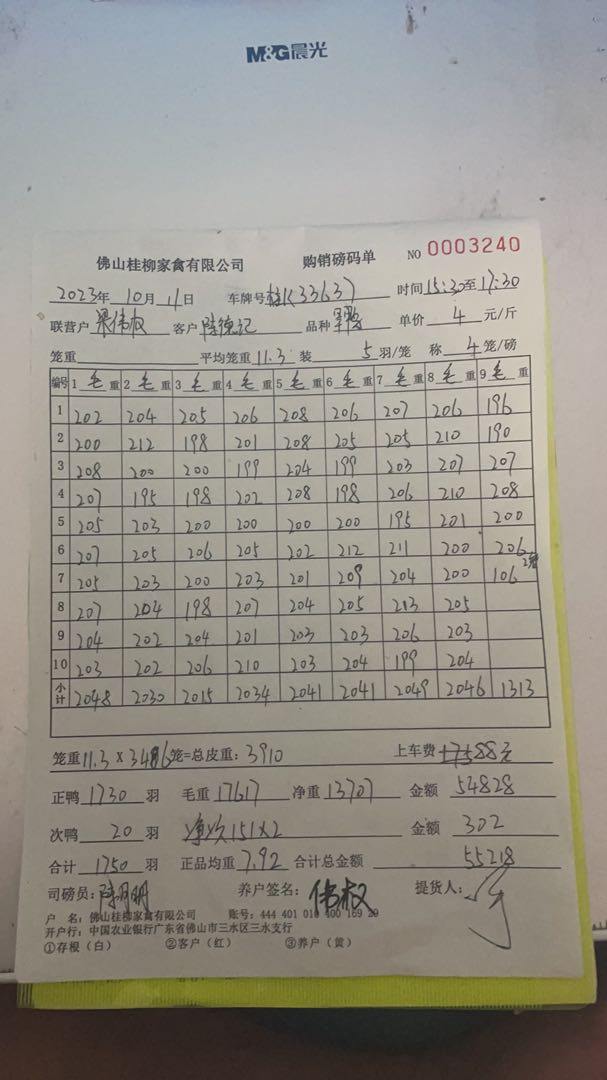 M&G晨光
佛山桂柳家禽有限公司 购销磅码单 NO 0003240
2023年 10月 11日 车牌号 桂K33637 时间 15:30至17:30
联营户 梁伟权 客户 陆德记 品种 单价 4 元/斤
笼重 平均笼重 11.3 装 5 羽/笼 称 4 笼/磅
编号 1 毛 重 2 毛 重 3 毛 重 4 毛 重 5 毛 重 6 毛 重 7 毛 重 8 毛 重 9 毛 重
1 202 204 205 206 208 206 207 206 196
2 200 212 198 201 208 205 205 210 190
3 208 200 200 199 204 199 203 207 207
4 207 195 198 202 208 198 206 210 208
5 205 203 200 200 200 200 195 201 200
6 207 205 206 205 202 212 211 200 206
7 205 203 200 203 201 209 204 200 106 2笼
8 207 204 198 207 204 205 213 205
9 204 202 204 201 203 203 206 203
10 203 202 206 210 203 204 199 204
小计 2048 2030 2015 2034 2041 2041 2049 2046 1313
笼重 11.3 X 346笼=总皮重: 3910 上车费 88元
正鸭 1730 羽 毛重 17617 净重 13707 金额 54828
次鸭 20 羽 净次151X2 金额 302
合计 1750 羽 正品均重 7.92 合计总金额 55218
司磅员: 陈月明 养户签名: 伟权 提货人:
户 名: 佛山桂柳家禽有限公司 账号: 444 401 010 400 169 29
开户行: 中国农业银行广东省佛山市三水区三水支行
①存根（白） ②客户（红） ③养户（黄）